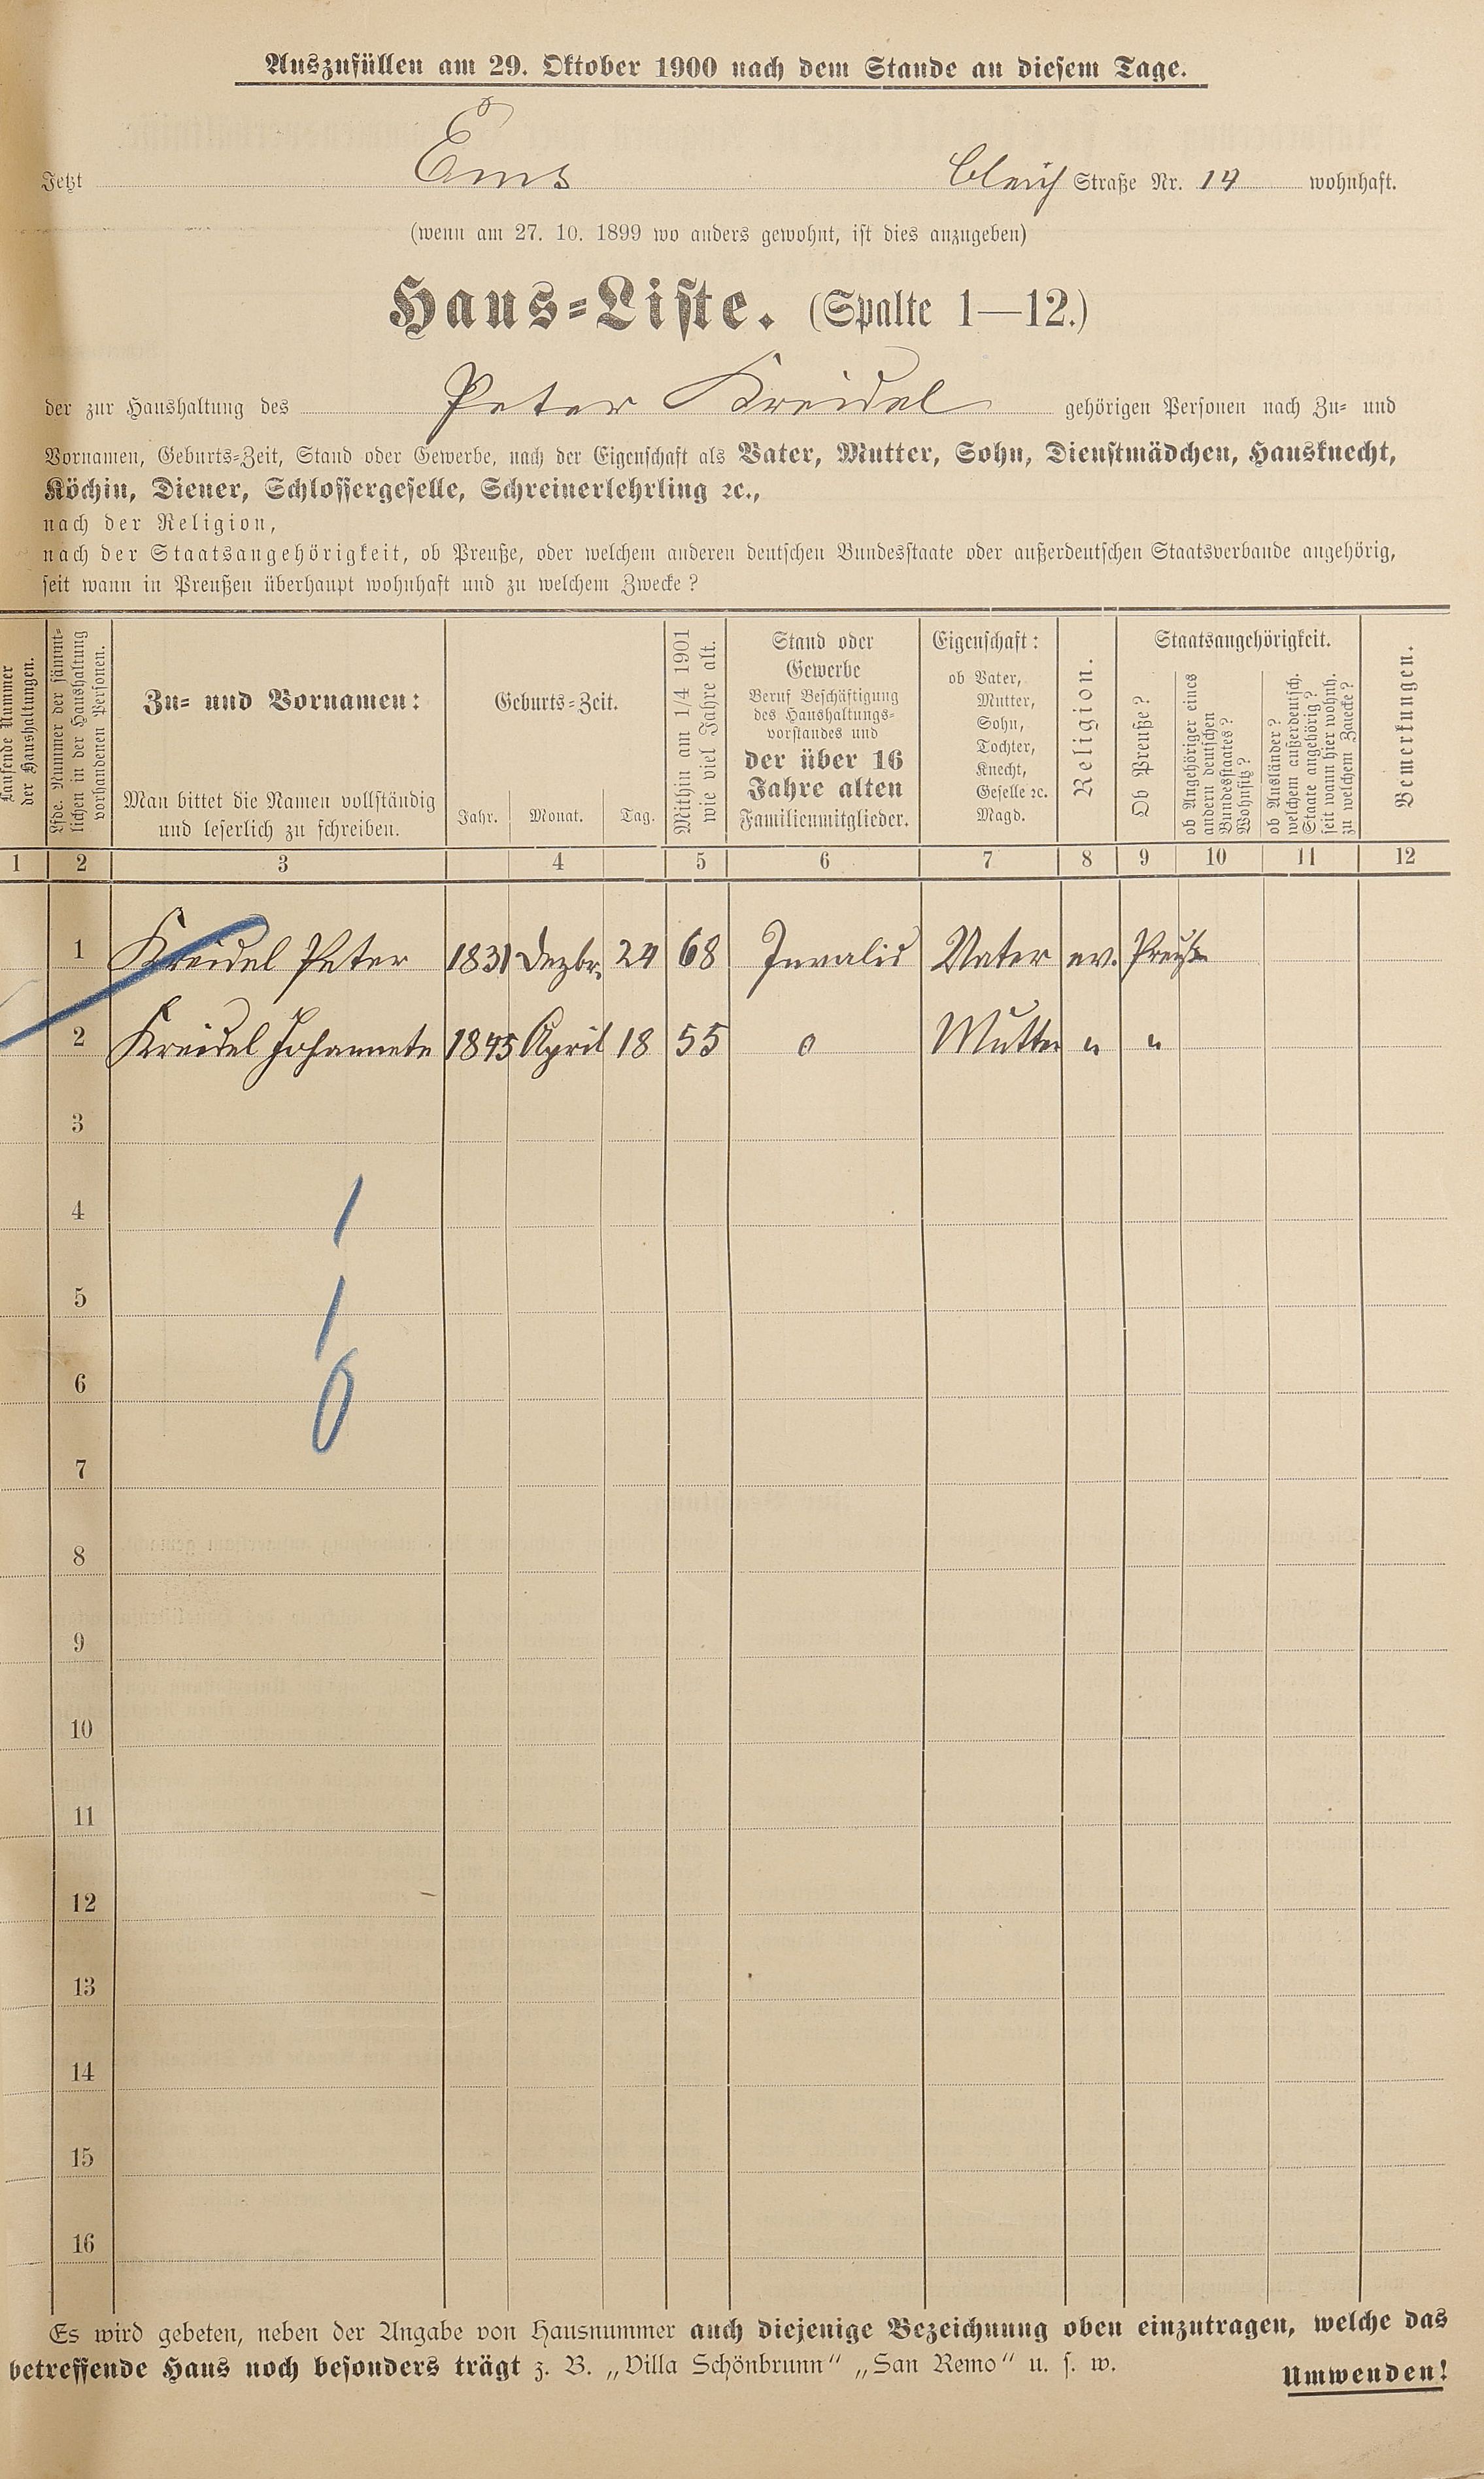 Auszufüllen am 29. Oktober 1900 nach dem Stande an diesem Tage.
Jetzt Ems Bleich Straße Nr. 14 wohnhaft.
(wenn am 27. 10. 1899 wo anders gewohnt, ist dies anzugeben)
Haus-Liste. (Spalte 1—12.)
der zur Haushaltung des Peter Kreidel gehörigen Personen nach Zu- und
Vornamen, Geburts-Zeit, Stand oder Gewerbe, nach der Eigenschaft als Vater, Mutter, Sohn, Dienstmädchen, Hausknecht,
Köchin, Diener, Schlossergeselle, Schreinerlehrling ꝛc.,
nach der Religion,
nach der Staatsangehörigkeit, ob Preuße, oder welchem anderen deutschen Bundesstaate oder außerdeutschen Staatsverbande angehörig,
seit wann in Preußen überhaupt wohnhaft und zu welchem Zwecke?
Laufende Nummer
der Haushaltungen.
Lfde. Nummer der sämmt-
lichen in der Haushaltung
vorhandenen Personen.
Zu- und Vornamen:
Man bittet die Namen vollständig
und leserlich zu schreiben.
Geburts-Zeit.
Jahr. Monat. Tag.
Mithin am 1/4 1901
wie viel Jahre alt.
Stand oder
Gewerbe
Beruf Beschäftigung
des Haushaltungs-
vorstandes und
der über 16
Jahre alten
Familienmitglieder.
Eigenschaft:
ob Vater,
Mutter,
Sohn,
Tochter,
Knecht,
Geselle ꝛc.
Magd.
Religion.
Staatsangehörigkeit.
Ob Preuße?
ob Angehöriger eines
andern deutschen
Bundesstaates?
Wohnsitz?
ob Ausländer?
welchem außerdeutsch.
Staate angehörig?
seit wann hier wohnh.
zu welchem Zwecke?
Bemerkungen.
1 2 3 4 5 6 7 8 9 10 11 12
1 Kreidel Peter 1831 Dezbr. 24 68 Invalid Vater ev. Preuße
2 Kreidel Johannete 1845 April 18 55 0 Mutter " "
3
4 1
5 1
6 0
7
8
9
10
11
12
13
14
15
16
Es wird gebeten, neben der Angabe von Hausnummer auch diejenige Bezeichnung oben einzutragen, welche das
betreffende Haus noch besonders trägt z. B. „Villa Schönbrunn“ „San Remo“ u. s. w.
Umwenden!